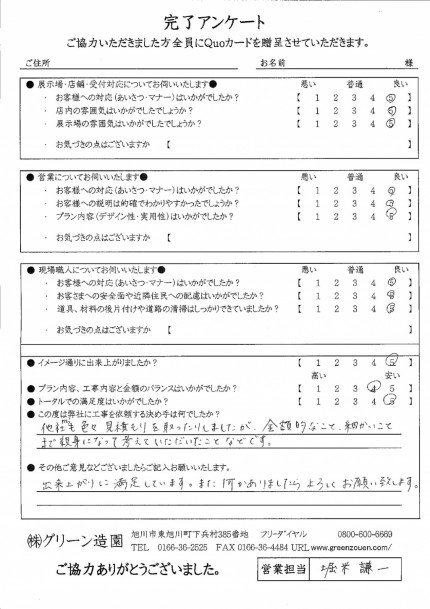 完了アンケート
ご協力いただきました方全員にQuoカードを贈呈させていただきます。
ご住所 お名前 様
●展示場・店舗・受付対応についてお伺いいたします● 悪い 普通 良い
・ お客様への対応(あいさつ・マナー)はいかがでしたか? 【 1 2 3 4 5 】
・ 店内の雰囲気はいかがでしたでしょうか? 【 1 2 3 4 5 】
・ 展示場の雰囲気はいかがでしたでしょうか? 【 1 2 3 4 5 】
・ お気づきの点はございますか 【 】
●営業についてお伺いいたします● 悪い 普通 良い
・ お客様への対応(あいさつ・マナー)はいかがでしたか? 【 1 2 3 4 5 】
・ お客様への説明は的確でわかりやすかったでしょうか? 【 1 2 3 4 5 】
・ プラン内容(デザイン性・実用性)はいかがでしたか? 【 1 2 3 4 5 】
・ お気づきの点はございますか 【 】
●現場職人についてお伺いいたします● 悪い 普通 良い
・ お客様への対応(あいさつ・マナー)はいかがでしたか? 【 1 2 3 4 5 】
・ お客さまへの安全面や近隣住民への配慮はいかがでしたか? 【 1 2 3 4 5 】
・ 道具、材料の後片付けや道路の清掃はしっかりできていましたか? 【 1 2 3 4 5 】
・ お気づきの点はございますか 【 】
●イメージ通りに出来上がりましたか? 【 1 2 3 4 5 】
高い 安い
●プラン内容、工事内容と金額のバランスはいかがでしたか? 【 1 2 3 4 5 】
●トータルでの満足度はいかがでしたか? 【 1 2 3 4 5 】
●この度は弊社に工事を依頼する決め手は何でしたか?
他社も色々見積もりを取ったりしましたが、金額的なこと、細かいこと
まで親身になって考えていただいたことなどです。
●その他ご意見などございましたらご記入お願いいたします。
出来上がりに満足しています。また何かありましたらよろしくお願い致します。
㈱グリーン造園 旭川市東旭川町下兵村385番地 フリーダイヤル 0800-600-6669
TEL 0166-36-2525 FAX 0166-36-4484 URL www.greenzouen.com/
ご協力ありがとうございました。 営業担当 堀米 謙一